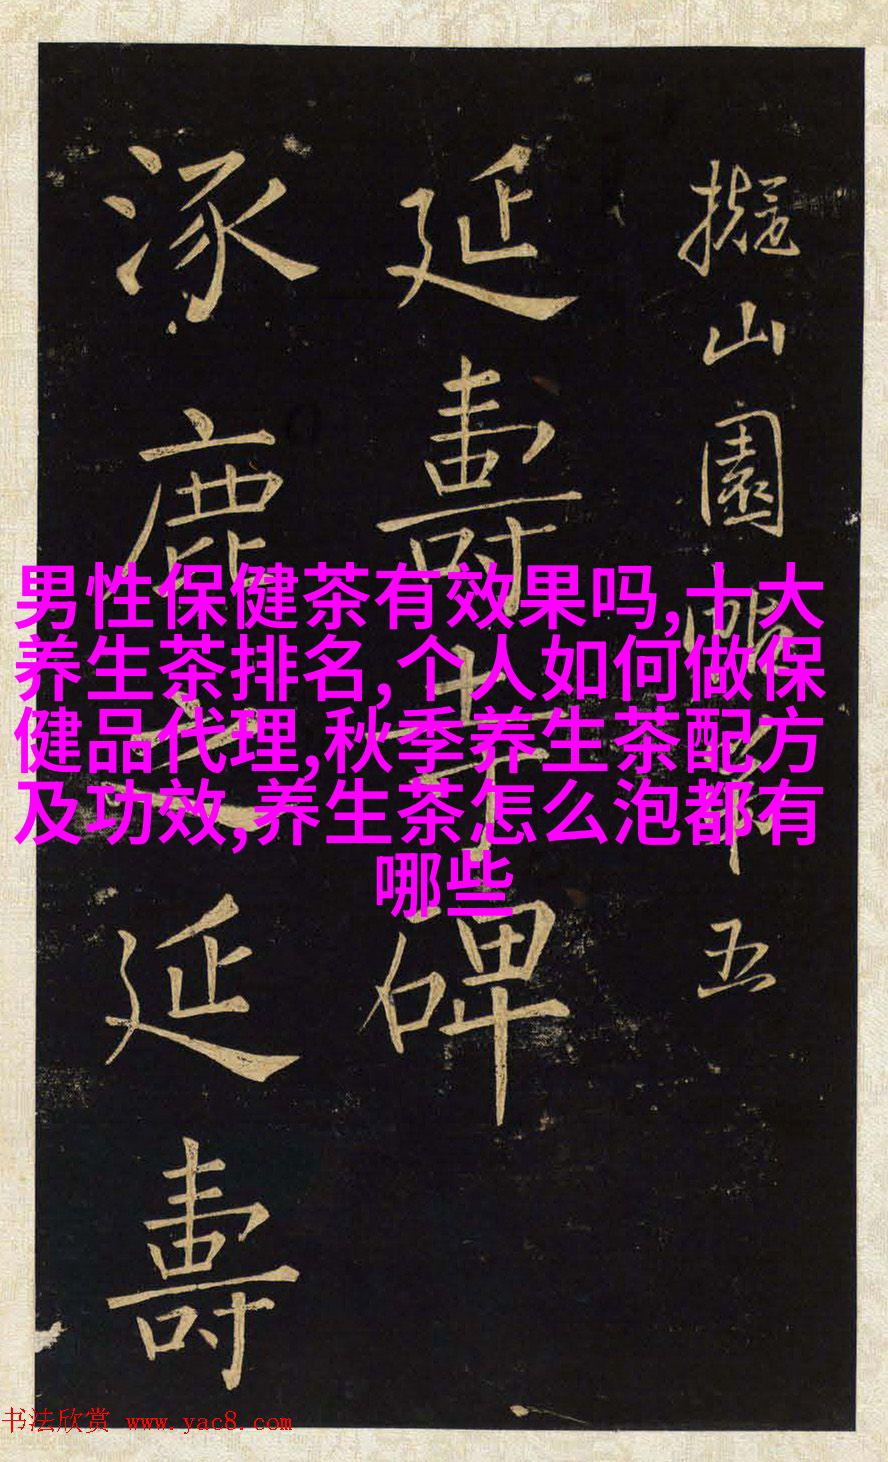 擬山園帖第五
延壽寺碑
涿鹿之延壽
男性保健茶有效果吗,十大
养生茶排名,个人如何做保
健品代理,秋季养生茶配方
及功效,养生茶怎么泡都有
哪些
书法欣赏 www.yac8.com